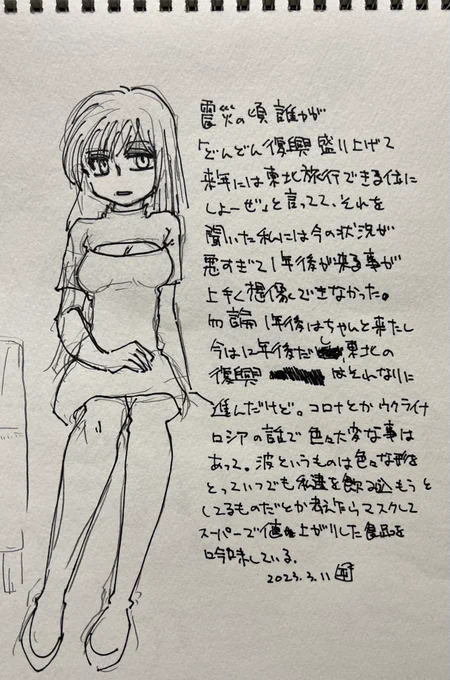 震災の頃誰かが
「どんどん復興盛り上げて
来年には東北旅行できる位に
しよーぜ」と言ってて、それを
聞いた私には今の状況が
悪すぎて1年後が来る事が
上手く想像できなかった。
勿論1年後はちゃんと来たし
今は12年後だし東北の
復興はそれなりに
進んだけど。コロナとかウクライナ
ロシアの誰で色々大変な事は
あって。波というものは色々な形を
とっていつでも私達を飲み込もうと
してるものだとか考えながらマスクして
スーパーで値上がりした食品を
吟味している。
2023.3.11